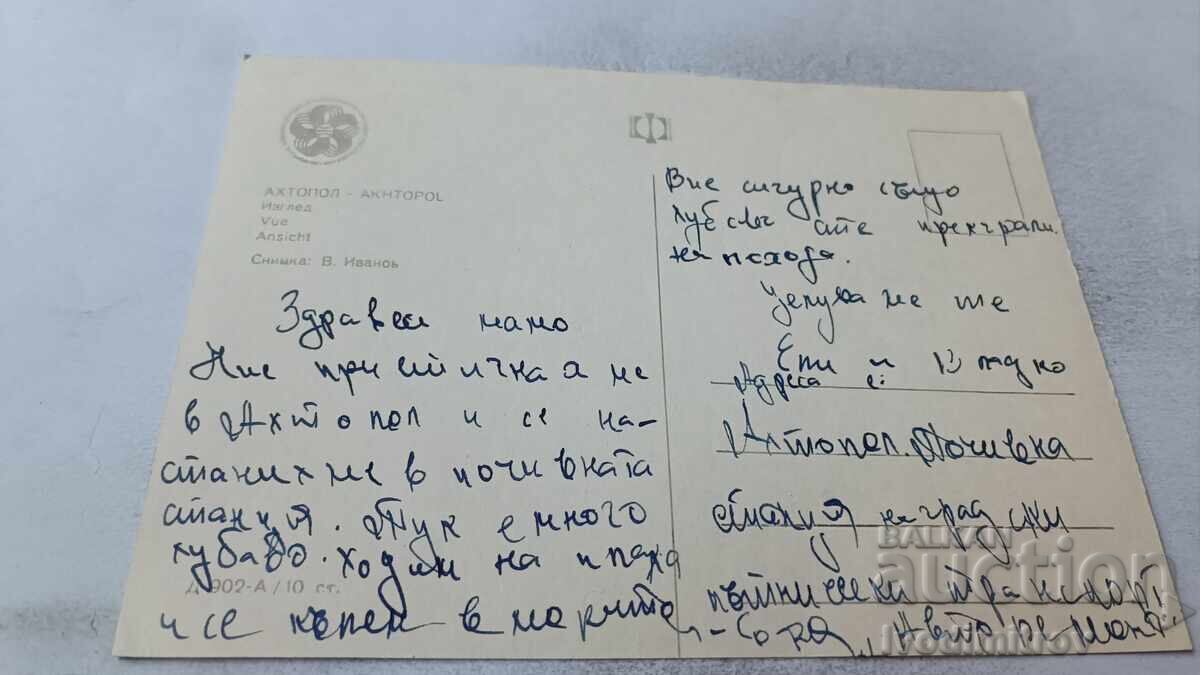 АХТОПОЛ - AKHTOPOL
Изглед
Vue
Ansicht
Снимка: В. Иванов
Здравей мамо
Ние пристигнахме
в Ахтопол и се на-
станихме в почивната
станция. Тук е много
хубаво. Ходим на плажа
и се къпем в морето
Д-902-А / 10 ст.
Вие сигурно също
хубаво сте прекарали
на похода.
Целуваме те
Ети и Владко
Адреса е:
Ахтопол. Почивка
станция на градски
пътнически транспорт
- София "Авторемонт"
BALKAN
auction
ivodimitrov